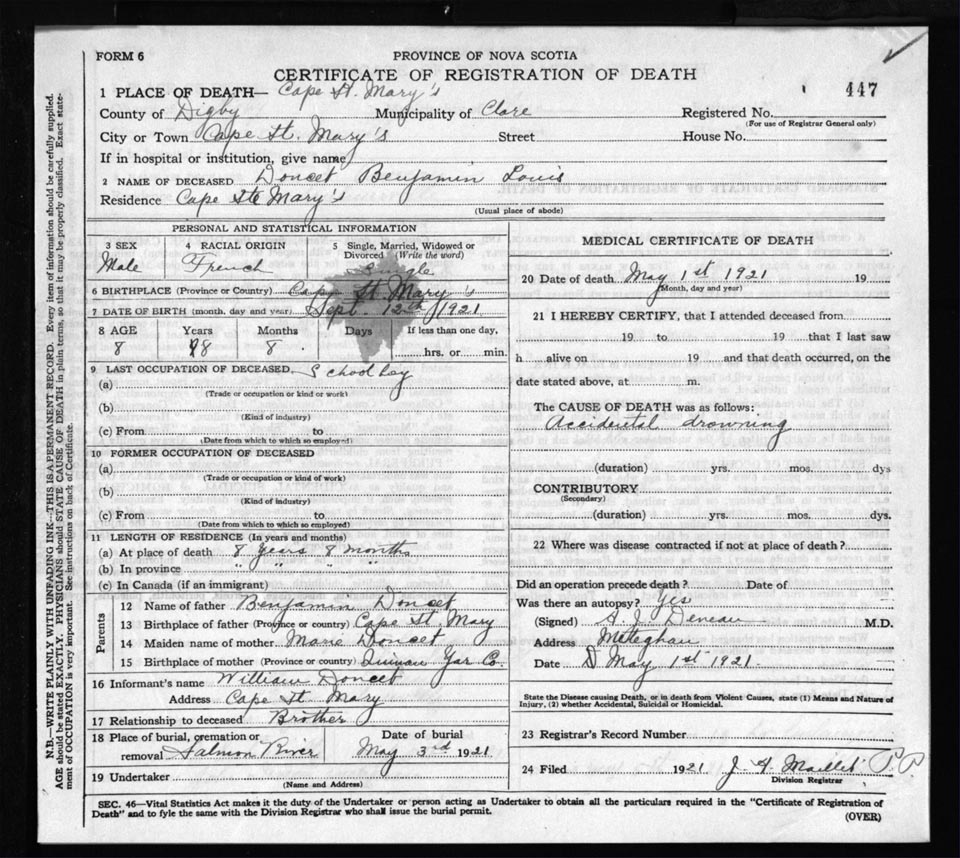 FORM 6
PROVINCE OF NOVA SCOTIA
CERTIFICATE OF REGISTRATION OF DEATH
1 PLACE OF DEATH— Cape St. Mary's
447
County of Digby Municipality of Clare Registered No.
(For use of Registrar General only)
City or Town Cape St. Mary's Street House No.
If in hospital or institution, give name
2 NAME OF DECEASED Doucet Benjamin Louis
Residence Cape Ste Mary's
(Usual place of abode)
PERSONAL AND STATISTICAL INFORMATION
3 SEX 4 RACIAL ORIGIN 5 Single, Married, Widowed or Divorced (Write the word)
Male French Single
6 BIRTHPLACE (Province or Country) Cape St Mary's
7 DATE OF BIRTH (month, day and year) Sept. 12th 1921
8 AGE Years Months Days If less than one day,
8 8 8 hrs. or min.
9 LAST OCCUPATION OF DECEASED, School boy
(a)
(Trade or occupation or kind or work)
(b)
(Kind of industry)
(c) From to
(Date from which to which so employed)
10 FORMER OCCUPATION OF DECEASED
(a)
(Trade or occupation or kind of work)
(b)
(Kind of industry)
(c) From to
(Date from which to which so employed)
11 LENGTH OF RESIDENCE (In years and months)
(a) At place of death 8 Years 8 months
(b) In province " " " "
(c) In Canada (if an immigrant)
Parents
12 Name of father Benjamin Doucet
13 Birthplace of father (Province or country) Cape St. Mary
14 Maiden name of mother Marie Doucet
15 Birthplace of mother (Province or country) Quinan Yar Co.
16 Informant's name William Doucet
Address Cape St. Mary
17 Relationship to deceased Brother
18 Place of burial, cremation or removal Salmon River
Date of burial May 3rd 1921
19 Undertaker
(Name and Address)
MEDICAL CERTIFICATE OF DEATH
20 Date of death May 1st 1921 19
(Month, day and year)
21 I HEREBY CERTIFY, that I attended deceased from
19 to 19 that I last saw
h alive on 19 and that death occurred, on the
date stated above, at m.
The CAUSE OF DEATH was as follows:
Accidental drowning
(duration) yrs. mos. dys
CONTRIBUTORY
(Secondary)
(duration) yrs. mos. dys.
22 Where was disease contracted if not at place of death?
Did an operation precede death? Date of
Was there an autopsy? Yes
(Signed) Deveau M.D.
Address Meteghan
Date May 1st 1921
State the Disease causing Death, or in death from Violent Causes, state (1) Means and Nature of Injury, (2) whether Accidental, Suicidal or Homicidal.
23 Registrar's Record Number
24 Filed 1921 J. A. Maillet P.P.
Division Registrar
SEC. 46—Vital Statistics Act makes it the duty of the Undertaker or person acting as Undertaker to obtain all the particulars required in the "Certificate of Registration of
Death" and to fyle the same with the Division Registrar who shall issue the burial permit.
(OVER)
N.B.—WRITE PLAINLY WITH UNFADING INK—THIS IS A PERMANENT RECORD. Every item of information should be carefully supplied.
AGE should be stated EXACTLY. PHYSICIANS should STATE CAUSE OF DEATH in plain terms, so that it may be properly classified. Exact state-
ment of OCCUPATION is very important. See instructions on back of Certificate.